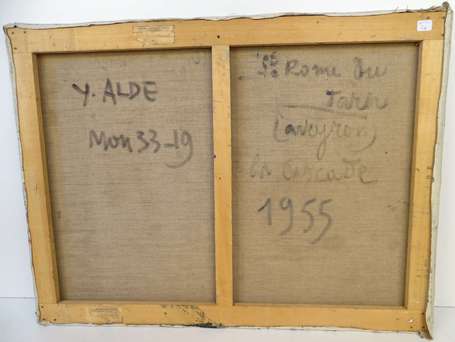 Y. ALDE
Mon 33-19
Ste Rome du
Tarn
(aveyron)
la cascade
1955